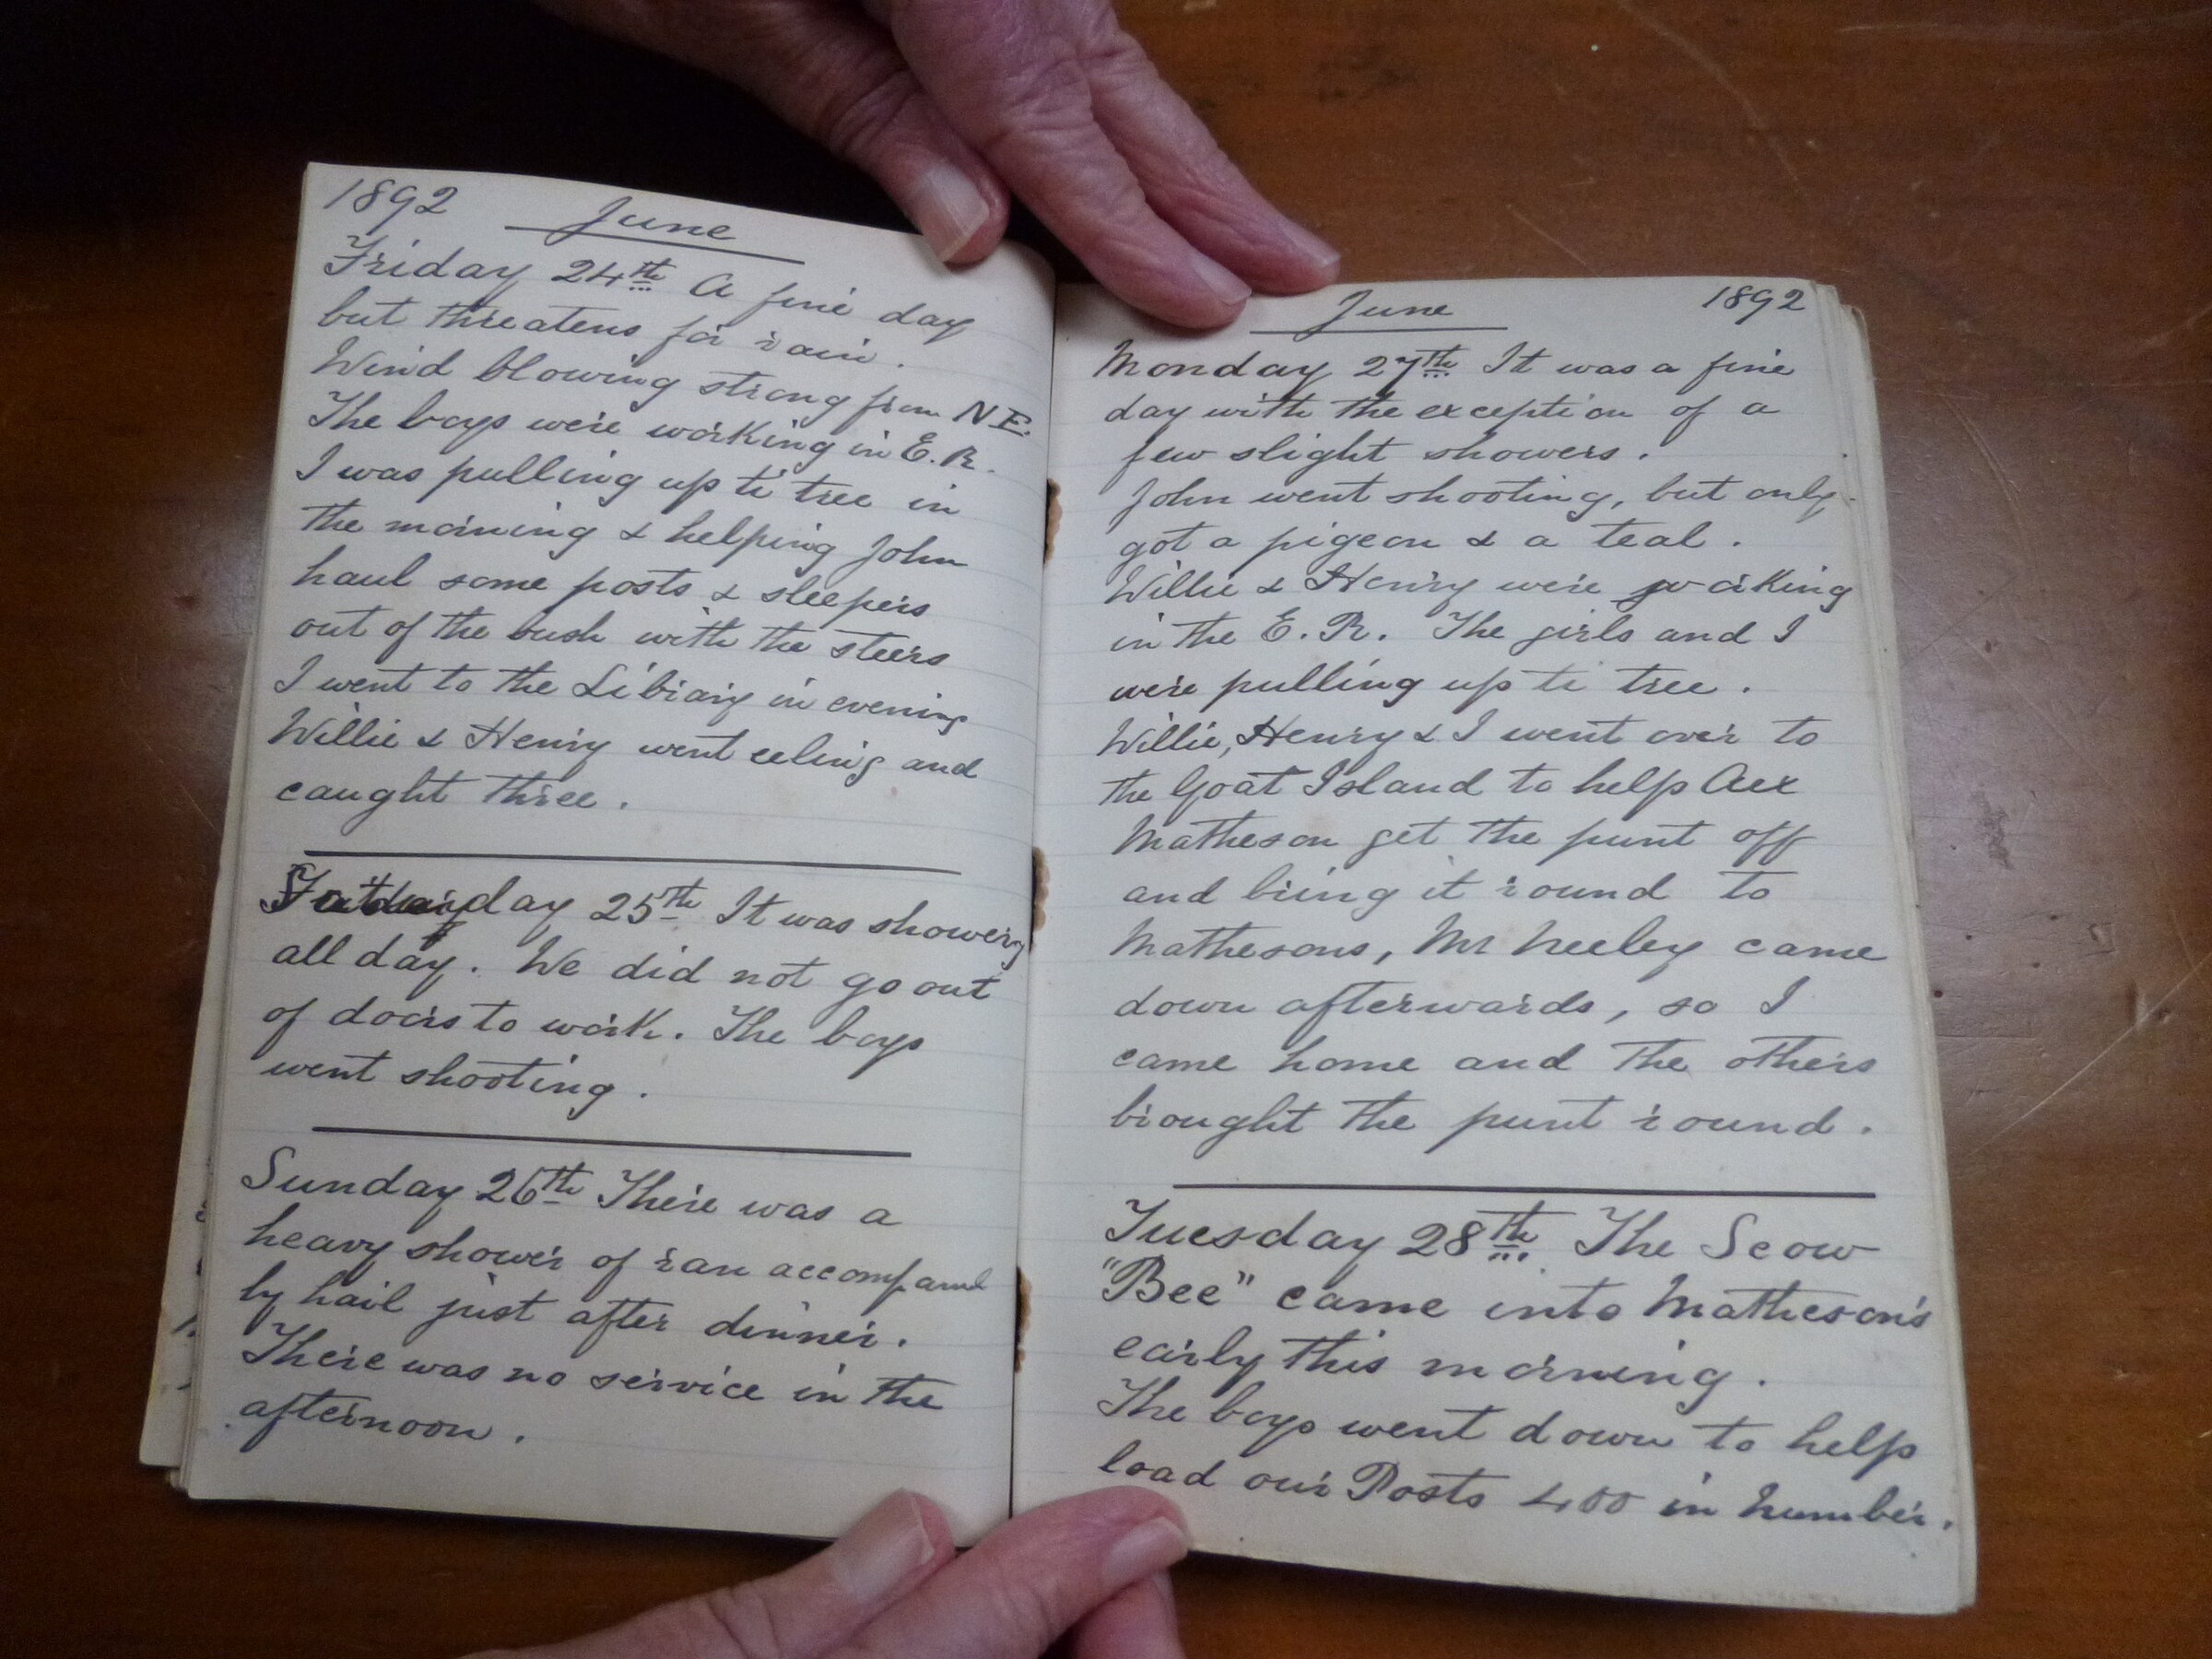 1892 June
Friday 24th A fine day
but threatens for rain.
Wind blowing strong from N E.
The boys were working in E. R.
I was pulling up ti tree in
the morning & helping John
haul some posts & sleepers
out of the bush with the steers
I went to the Library in evening
Willie & Henry went eeling and
caught three.
Saturday 25th It was showery
all day. We did not go out
of doors to work. The boys
went shooting.
Sunday 26th There was a
heavy shower of ran accompand
by hail just after dinner.
There was no service in the
afternoon.
June 1892
Monday 27th It was a fine
day with the exception of a
few slight showers.
John went shooting, but only
got a pigeon & a teal.
Willie & Henry were working
in the E. R. The girls and I
were pulling up ti tree.
Willie, Henry & I went over to
the Goat Island to help Alex
Matheson get the punt off
and bring it round to
Mathesons, Mr Neeley came
down afterwards, so I
came home and the others
brought the punt round.
Tuesday 28th The Scow
"Bee" came into Matheson's
early this morning.
The boys went down to help
load our Posts 400 in number.